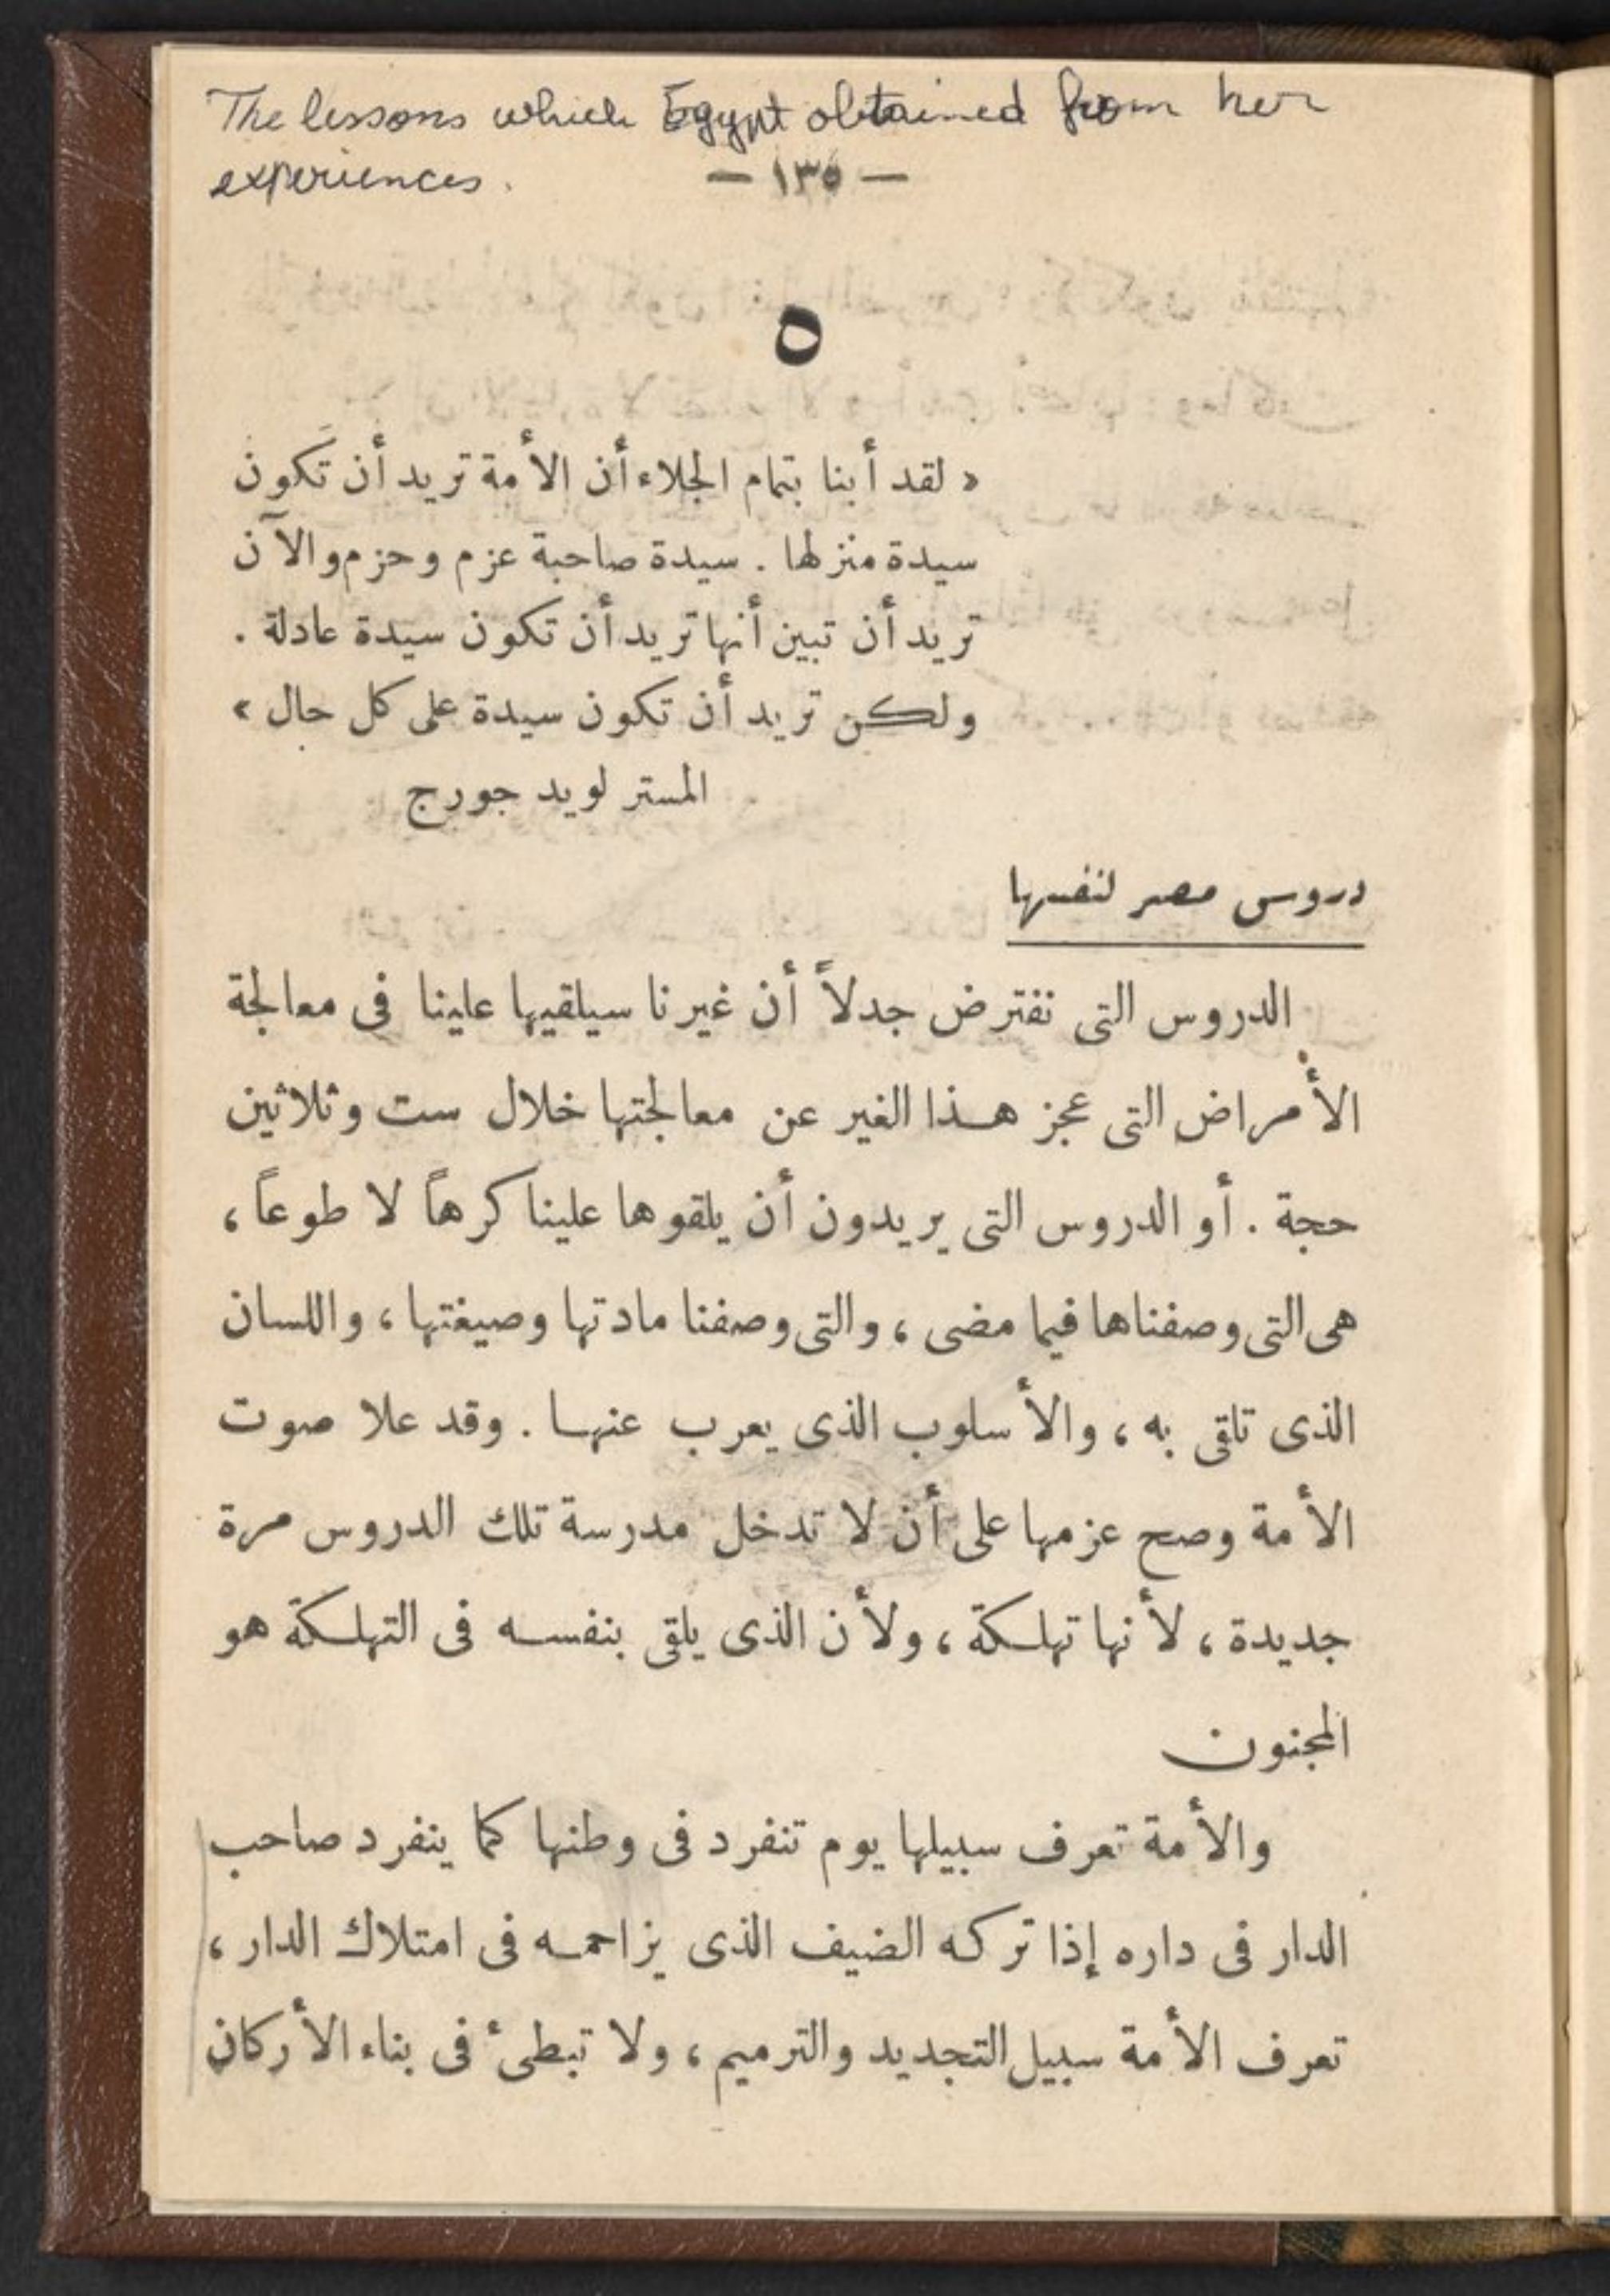 The lessons which Egypt obtained from her
experiences.
— ١٣٥ —
٥
« لقد أبنا بتمام الجلاء أن الأمة تريد أن تَكون
سيدة منزلها . سيدة صاحبة عزم وحزم والآن
تريد أن تبين أنها تريد أن تكون سيدة عادلة .
ولكن تريد أن تكون سيدة على كل حال »
المستر لويد جورج
دروس مصر لنفسها
الدروس التى نفترض جدلاً أن غيرنا سيلقيها علينا فى معالجة
الأمراض التى عجز هذا الغير عن معالجتها خلال ست وثلاثين
حجة . أو الدروس التى يريدون أن يلقوها علينا كرهاً لا طوعاً ،
هى التى وصفناها فيما مضى ، والتى وصفنا مادتها وصيغتها ، واللسان
الذى تلقى به ، والأسلوب الذى يعرب عنها . وقد علا صوت
الأمة وصح عزمها على أن لا تدخل مدرسة تلك الدروس مرة
جديدة ، لأنها تهلكة ، ولأن الذى يلقى بنفسه فى التهلكة هو
المجنون
والأمة تعرف سبيلها يوم تنفرد فى وطنها كما ينفرد صاحب
الدار فى داره إذا تركه الضيف الذى يزاحمه فى امتلاك الدار ،
تعرف الأمة سبيل التجديد والترميم ، ولا تبطىء فى بناء الأركان